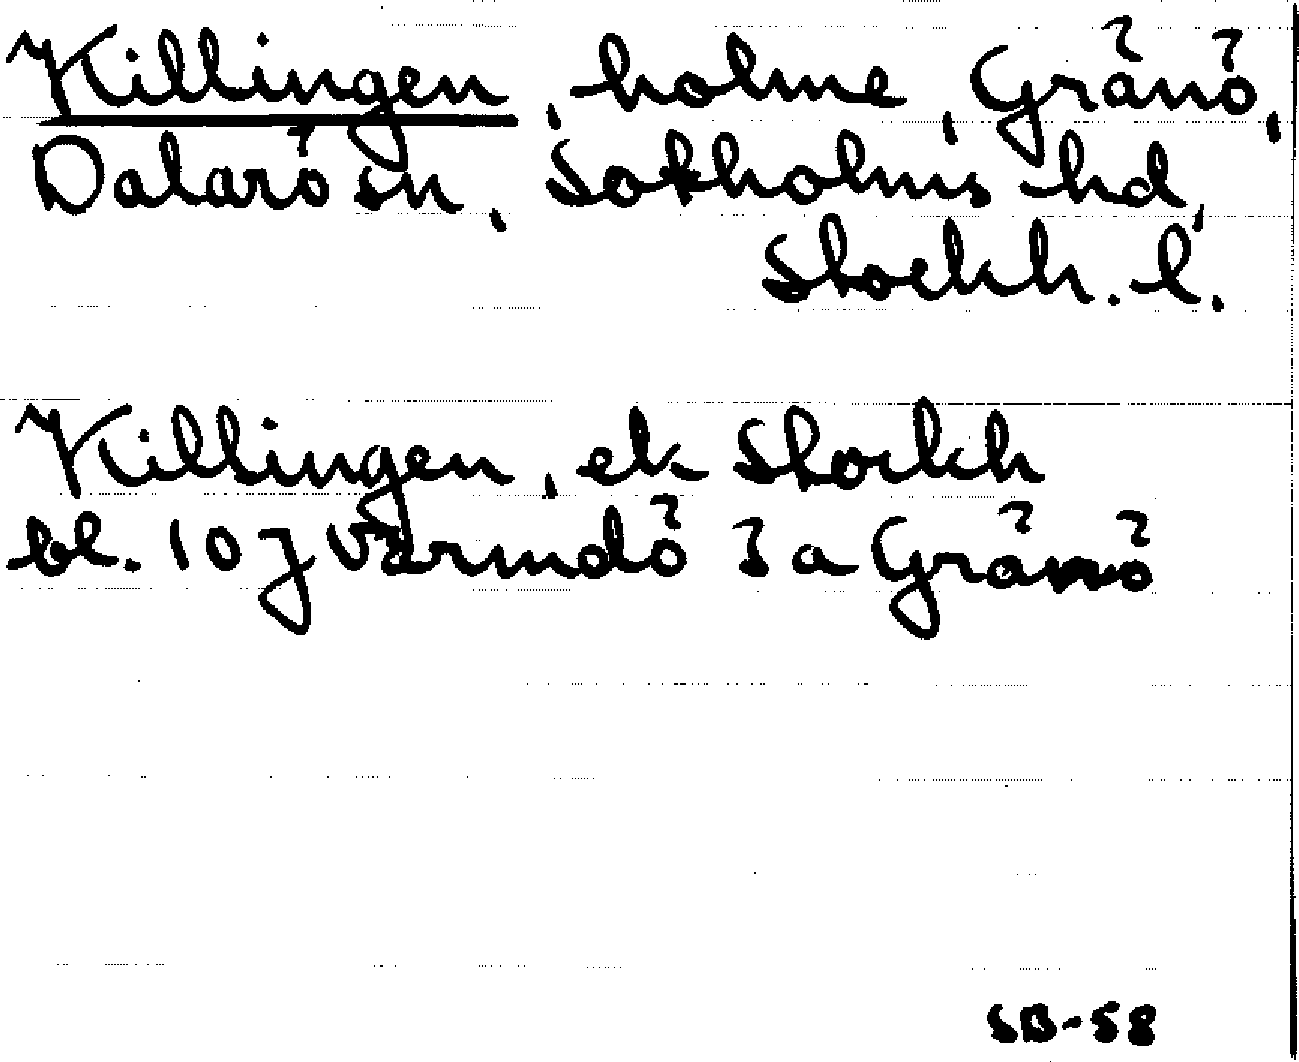 Killingen, holme, Gränö,
Dalarö sn, Sotholms hd,
Stockh. l.
Killingen, ek Stockh
bl. 107 Värmdö 3 a Gränö
SB-58